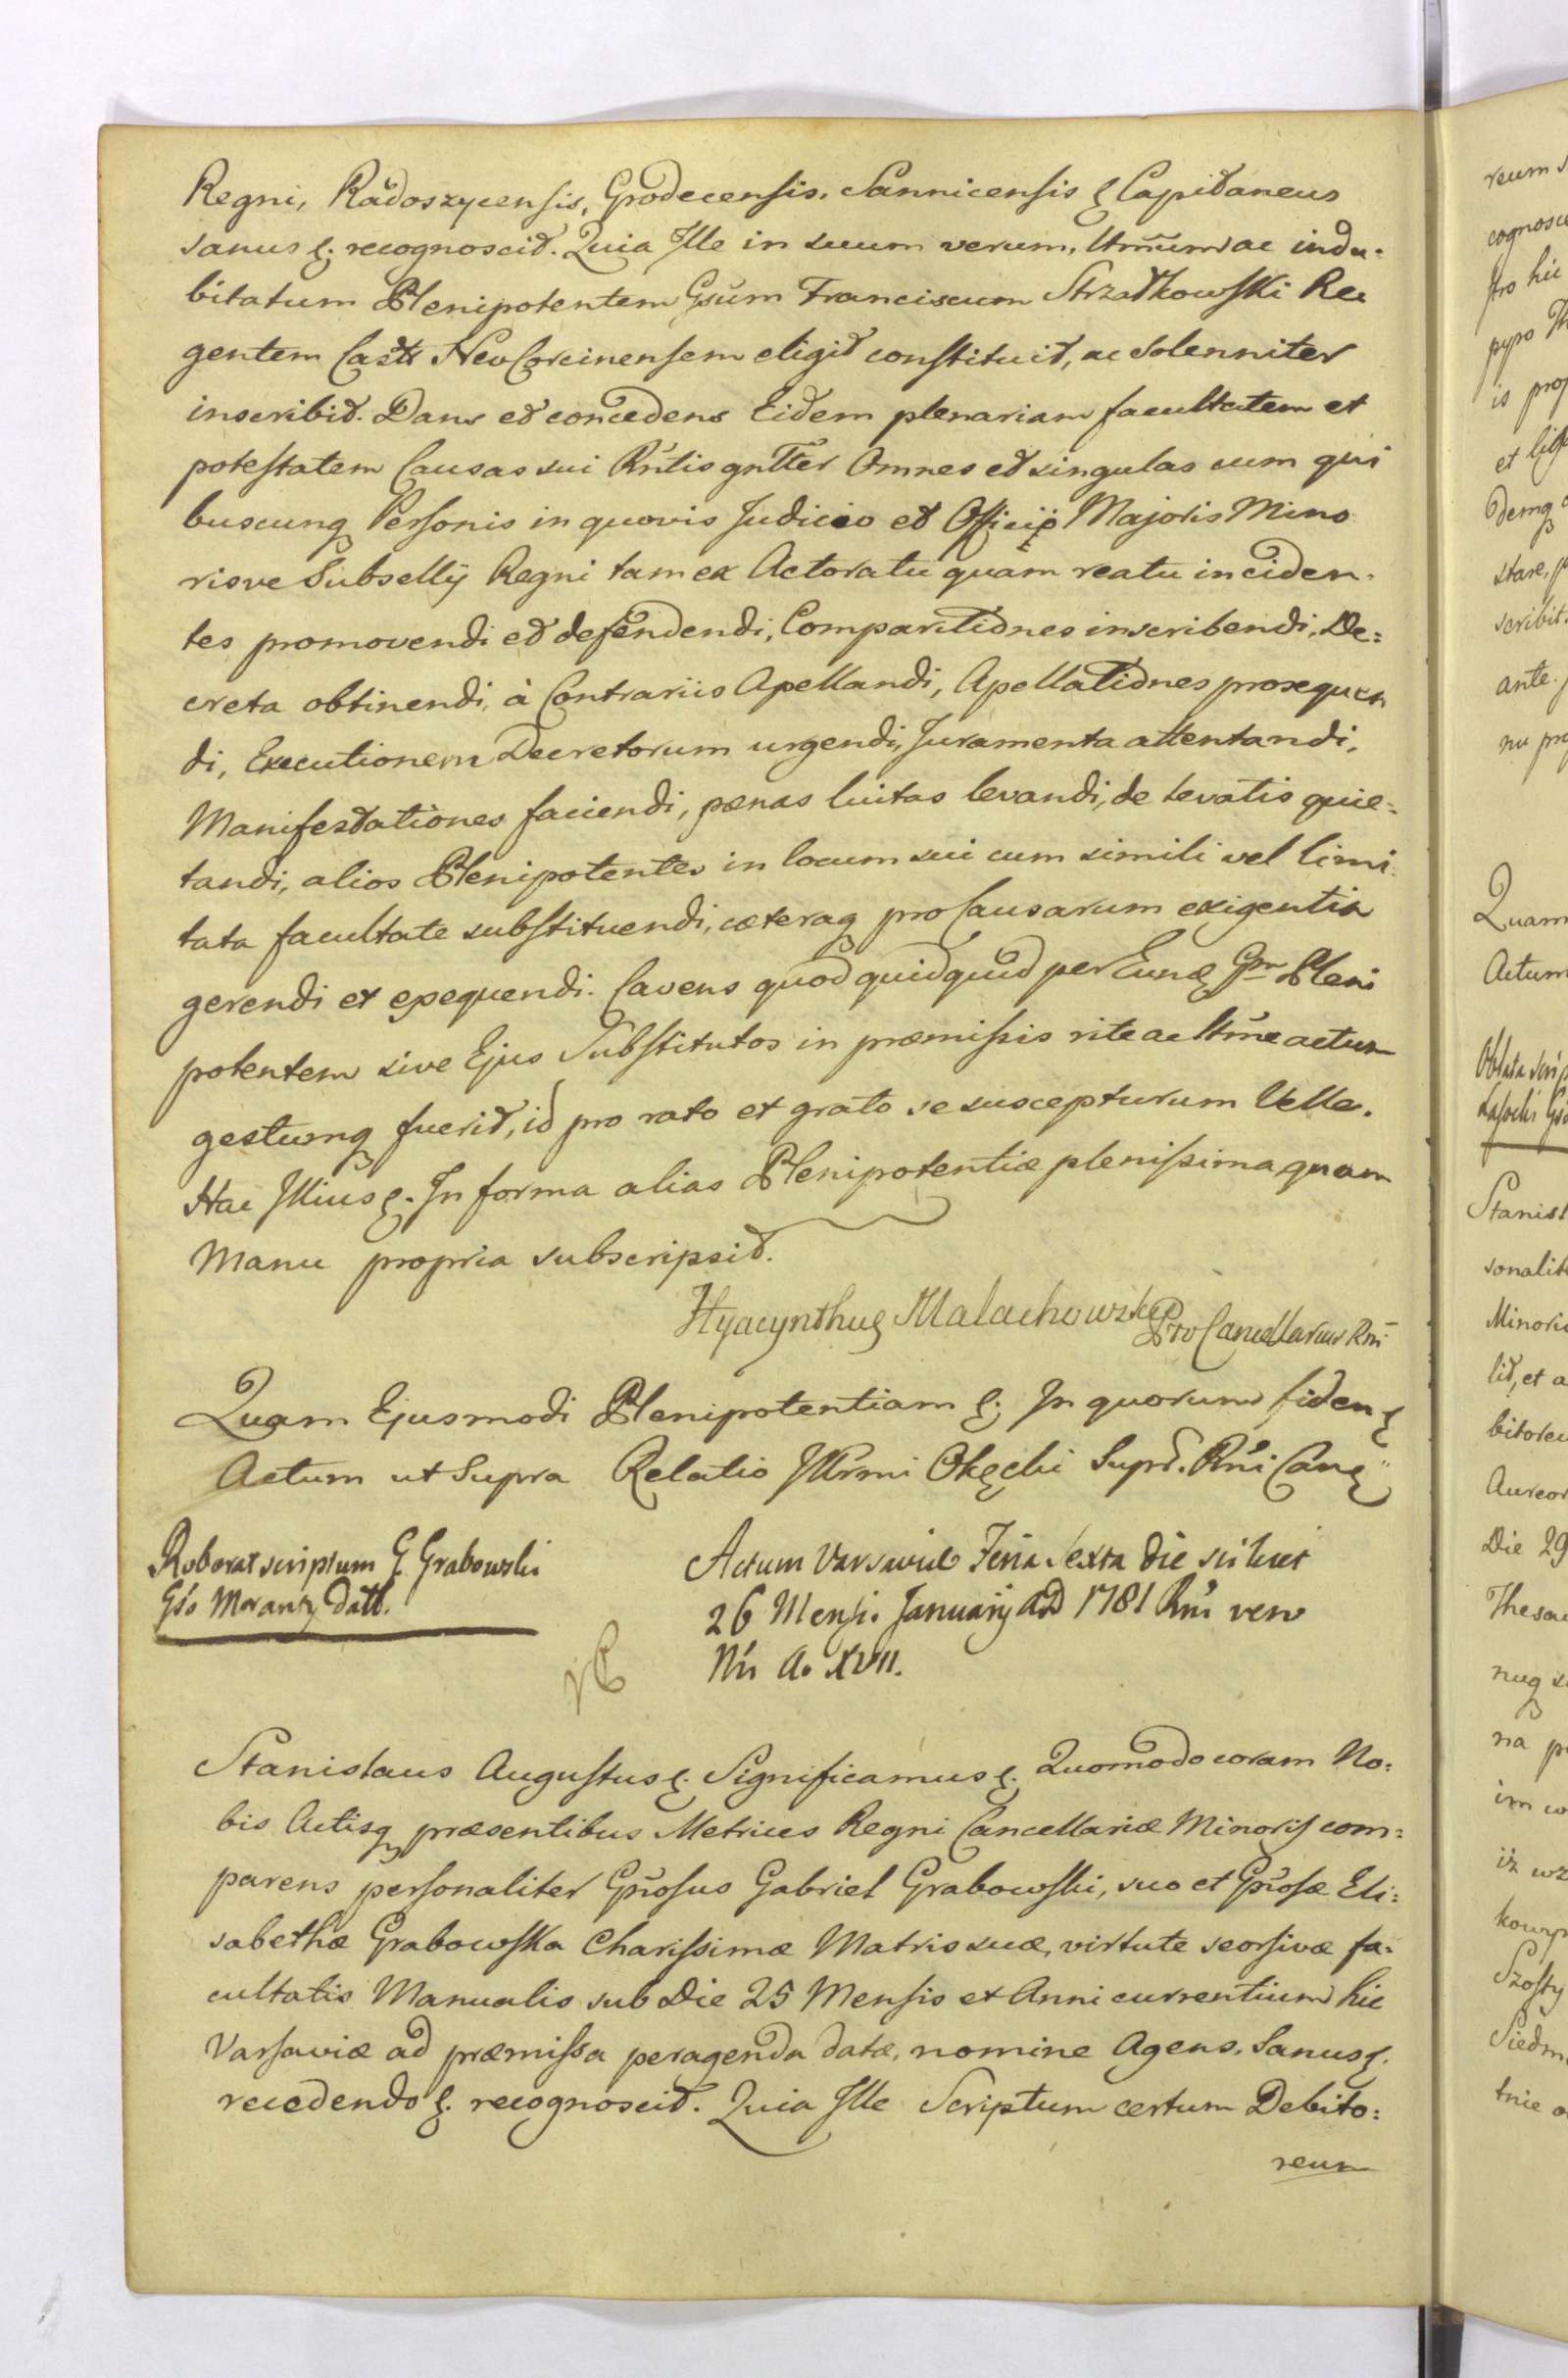 Regni, Radoszycensis, Grodecensis, Sannicensis & Capitaneus
sanus &. recognoscit. Quia Ille in suum verum, ltmũm ac indu-
bitatum Plenipotentem Gsũm Franciscum Strzałkowski Re
gentem Castr NeoCorcinensem eligit constituit, ac solenniter
inscribit. Dans et concedens Eidem plenariam facultatem et
potestatem Causas sui Rñtis gñtter Omnes et singulas cum qui
buscunq Personis in quovis Judicio et Officijs Majoris Mino
risve Subsellij Regni tam ex Actoratu quàm reatu inciden-
tes promovendi et defendendi, Comparitiones inscribendi, De=
creta obtinendi, à Contrariis Apellandi, Apellationes prosequen
di, Executionem Decretorum urgendi, Juramenta attentandi,
Manifestationes faciendi, pœnas luitas levandi, de levatis quie=
tandi, alios Plenipotentes in locum sui cum simili vel limi
tata facultate substituendi, cæteraq pro Causarum exigentia
gerendi et exequendi. Cavens quod quidquid per Eund Gm Pleni
potentem sive Ejus Substitutos in præmissis rite ac ltm̃e actum
gestumq fuerit, id pro rato et grato se suscepturum Velle.
Hac Illius &. In forma alias Plenipotentiæ plenissima quam
Manu propria subscripsit.
Hyacynthus Małachowski ProCancellarius Rni
Quam Ejusmodi Plenipotentiam &. In quorum fidem &
Actum ut Supra Relatio Illrmi Okęcki Supr. Rñi Canc
Roborat scriptum G. Grabowski
Gso Morantz datt.
Actum Varsaviæ Feria Sexta die scilicet
26 Mensis Januarij AD 1781 Rni vero
Nri A. XVII.
Stanislaus Augustus &. Significamus &. Quomodo coram No=
bis Actisq præsentibus Metrices Regni Cancellariæ Minoris com=
parens personaliter Gñrosus Gabriel Grabowski, suo et Gñrosæ Eli=
sabethæ Grabowska Charissimæ Matris suæ, virtute seorsivæ fa=
cultatis Manualis sub Die 25 Mensis et Anni currentium hic
Varsaviæ ad præmissa peragenda datæ, nomine Agens. Sanus &.
recedendo &. recognoscit. Quia Ille Scriptum certum Debito=
reum